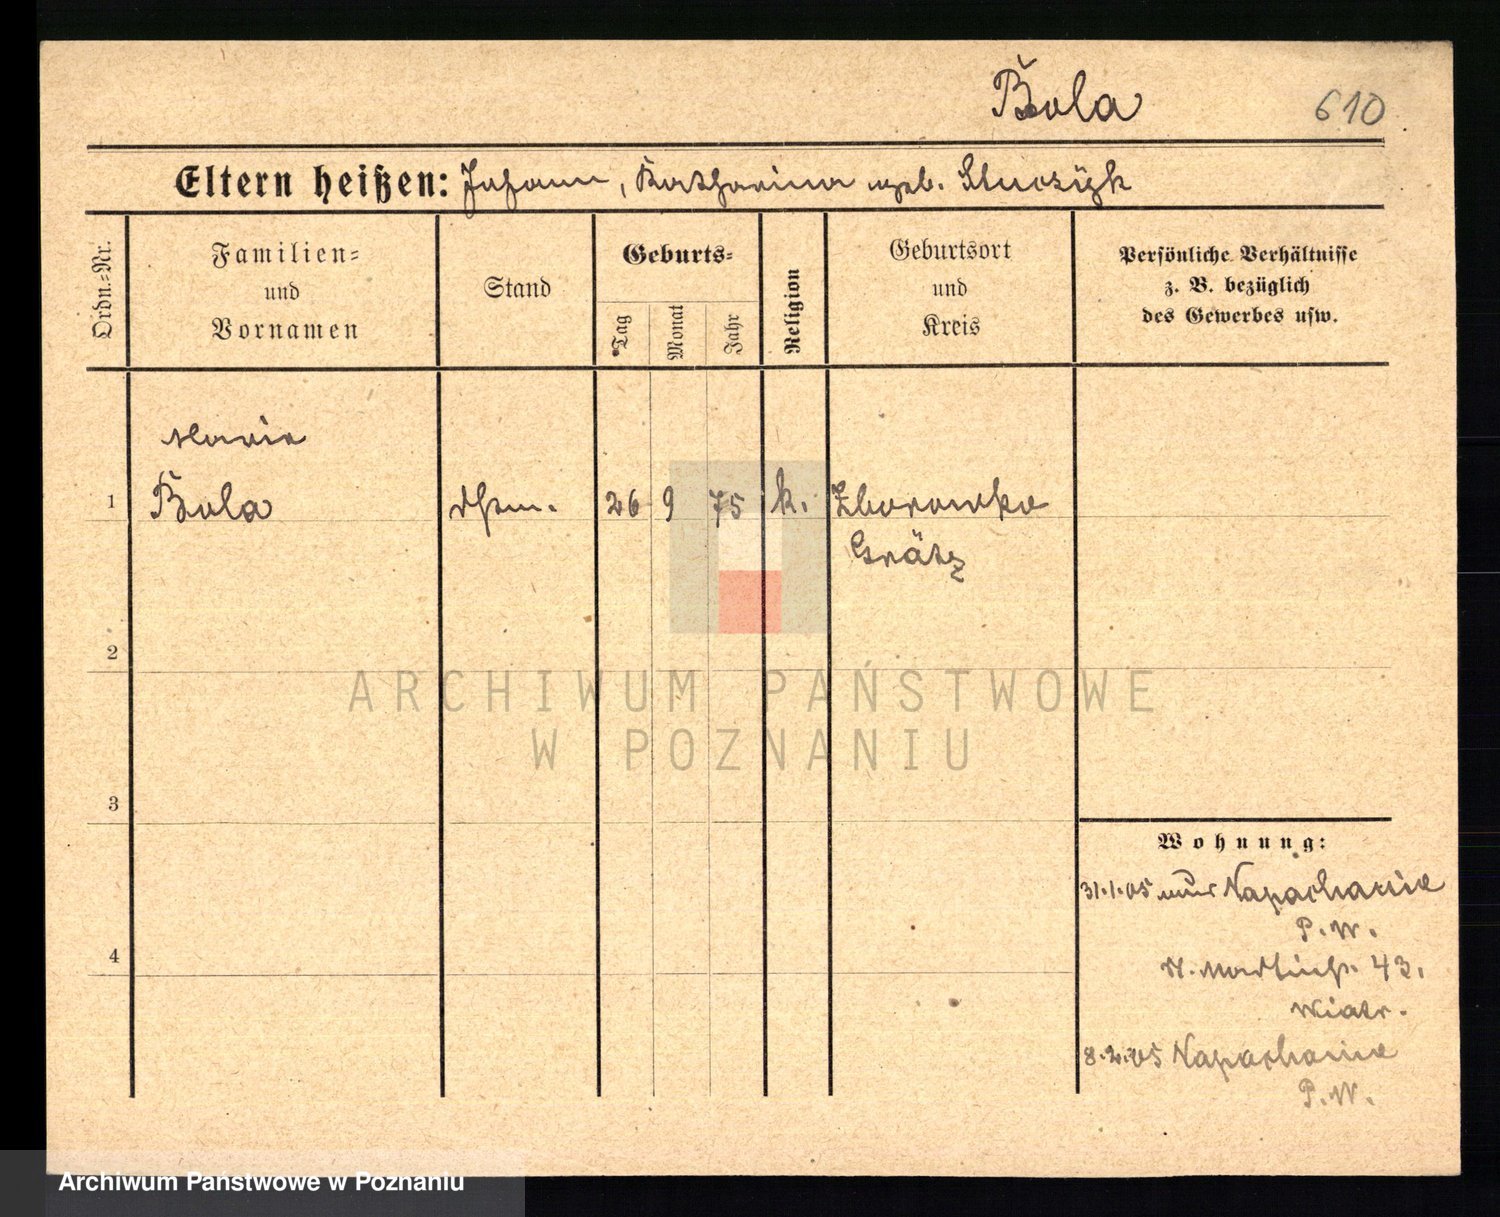 Bola 610
Eltern heißen: Johann, Katharina geb.
Ordn.-Nr.
Familien-
und
Vornamen
Stand
Geburts-
Tag
Monat
Jahr
Religion
Geburtsort
und
Kreis
Persönliche Verhältnisse
z. B. bezüglich
des Gewerbes usw.
Maria
1 Bola 26 9 75 k. Zborowko
Grätz
2
3
4
Wohnung:
31.1.05 Napachanie
P.W.
St. Martinstr. 43.
Wiatr.
8.2.05 Napachanie
P.W.
ARCHIWUM PAŃSTWOWE
W POZNANIU
Archiwum Państwowe w Poznaniu